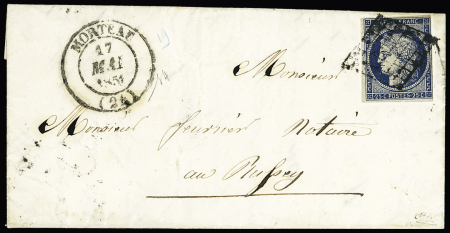 MORTEAU
17
MAI
1851
(24)
FRANC
25 c POSTES 25 c
Monsieur
Monsieur fournier Notaire
au Russey